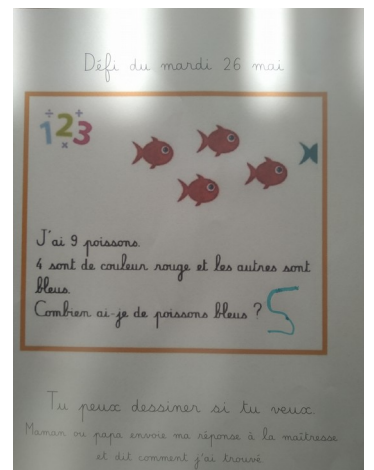 Défi du mardi 26 mai
÷ +
123
×
J'ai 9 poissons.
4 sont de couleur rouge et les autres sont
bleus.
Combien ai-je de poissons bleus ? 5
Tu peux dessiner si tu veux.
Maman ou papa envoie ma réponse à la maîtresse
et dit comment j'ai trouvé.